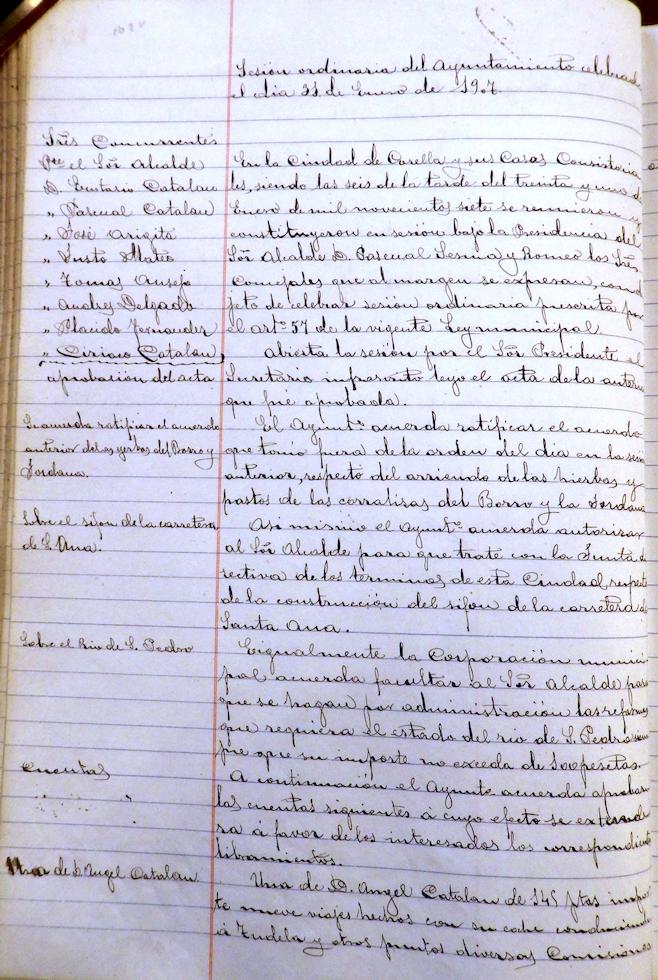 Sesión ordinaria del Ayuntamiento celebrad
el dia 31 de Enero de 1907
Sres Concurrentes
Pte el Sor Alcalde
D. Eustasio Catalan
" Pascual Catalan
" José Arigita
" Justo Mateo
" Tomas Ausejo
" Andres Delgado
" Placido Fernandez
" Ciriaco Catalan
En la Ciudad de Corella y sus Casas Consistoria
les, siendo las seis de la tarde del treinta y uno de
Enero de mil novecientos siete se reunieron y
constituyeron en sesión bajo la Presidencia del
Sor Alcalde D. Pascual Sesma y Romeo los Sres
Concejales que al margen se expresan, con ob
jeto de celebrar sesión ordinaria prescrita por
el artº 57 de la vigente Ley municipal.
aprobación del acta
Abierta la sesión por el Sor Presidente el
Secretario infrascrito leyo el acta de la anterior
que fué aprobada.
Se acuerda ratificar el acuerdo
anterior de las yerbas del Borro y
Jordana.
El Ayuntº acuerda ratificar el acuerdo
que tomó fuera de la orden del dia en la sesión
anterior, respecto del arriendo de las hierbas y
pastos de las corralizas del Borro y la Jordana
Sobre el sifon de la carretera
de S. Ana.
Asi mismo el Ayuntº acuerda autorizar
al Sor Alcalde para que trate con la Junta di
rectiva de los terminos de esta Ciudad, respecto
de la construcción del sifón de la carretera de
Santa Ana.
Sobre el Rio de S. Pedro
E igualmente la Corporación munici
pal acuerda facultar al Sor Alcalde para
que se hagan por administración las reformas
que requiera el estado del rio de S. Pedro siem
pre que su importe no exceda de 500 pesetas.
Cuentas
A continuación el Ayuntº acuerda aprobar
las cuentas siguientes á cuyo efecto se extende
ra á favor de los interesados los correspondiente
libramientos.
Una de D. Angel Catalan
Una de D. Angel Catalan de 145 ptas impor
te nueve viajes hechos con su coche conduciendo
á Tudela y otros puntos diversas Comisiones